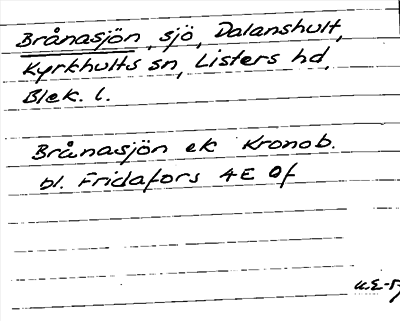 Brånasjön, sjö, Dalanshult,
Kyrkhults sn, Listers hd,
Blek. l.
Brånasjön ek Kronob.
bl. Fridafors 4E 0f